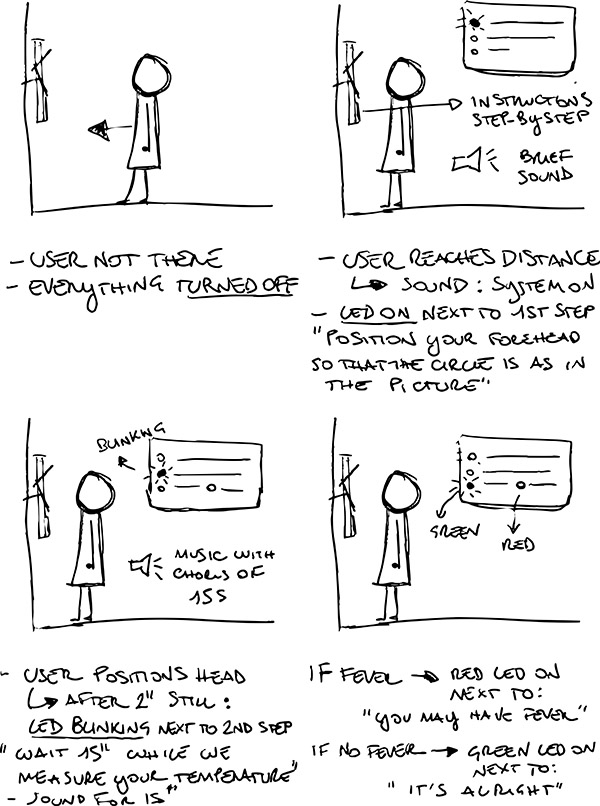 INSTRUCTIONS
STEP-BY-STEP
BRIEF
SOUND
- USER NOT THERE
- EVERYTHING TURNED OFF
- USER REACHES DISTANCE
↳ SOUND: SYSTEM ON
- LED ON NEXT TO 1ST STEP
"POSITION YOUR FOREHEAD
SO THAT THE CIRCLE IS AS IN
THE PICTURE"
BLINKING
MUSIC WITH
CHORUS OF
15S
GREEN
RED
- USER POSITIONS HEAD
↳ AFTER 2" STILL:
LED BLINKING NEXT TO 2ND STEP
"WAIT 15" WHILE WE
MEASURE YOUR TEMPERATURE"
- SOUND FOR 15"
IF FEVER → RED LED ON
NEXT TO:
"YOU MAY HAVE FEVER"
IF NO FEVER → GREEN LED ON
NEXT TO:
"IT'S ALRIGHT"